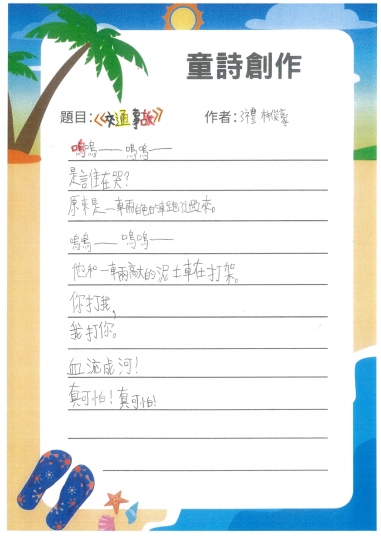 童詩創作
題目:《交通事故》 作者:
嗚嗚—— 嗚嗚——
是誰在哭?
原來是一輛白色的車跑過來。
嗚嗚—— 嗚嗚——
他和一輛高大的泥土車在打架。
你打我,
我打你。
血流成河!
真可怕!真可怕!